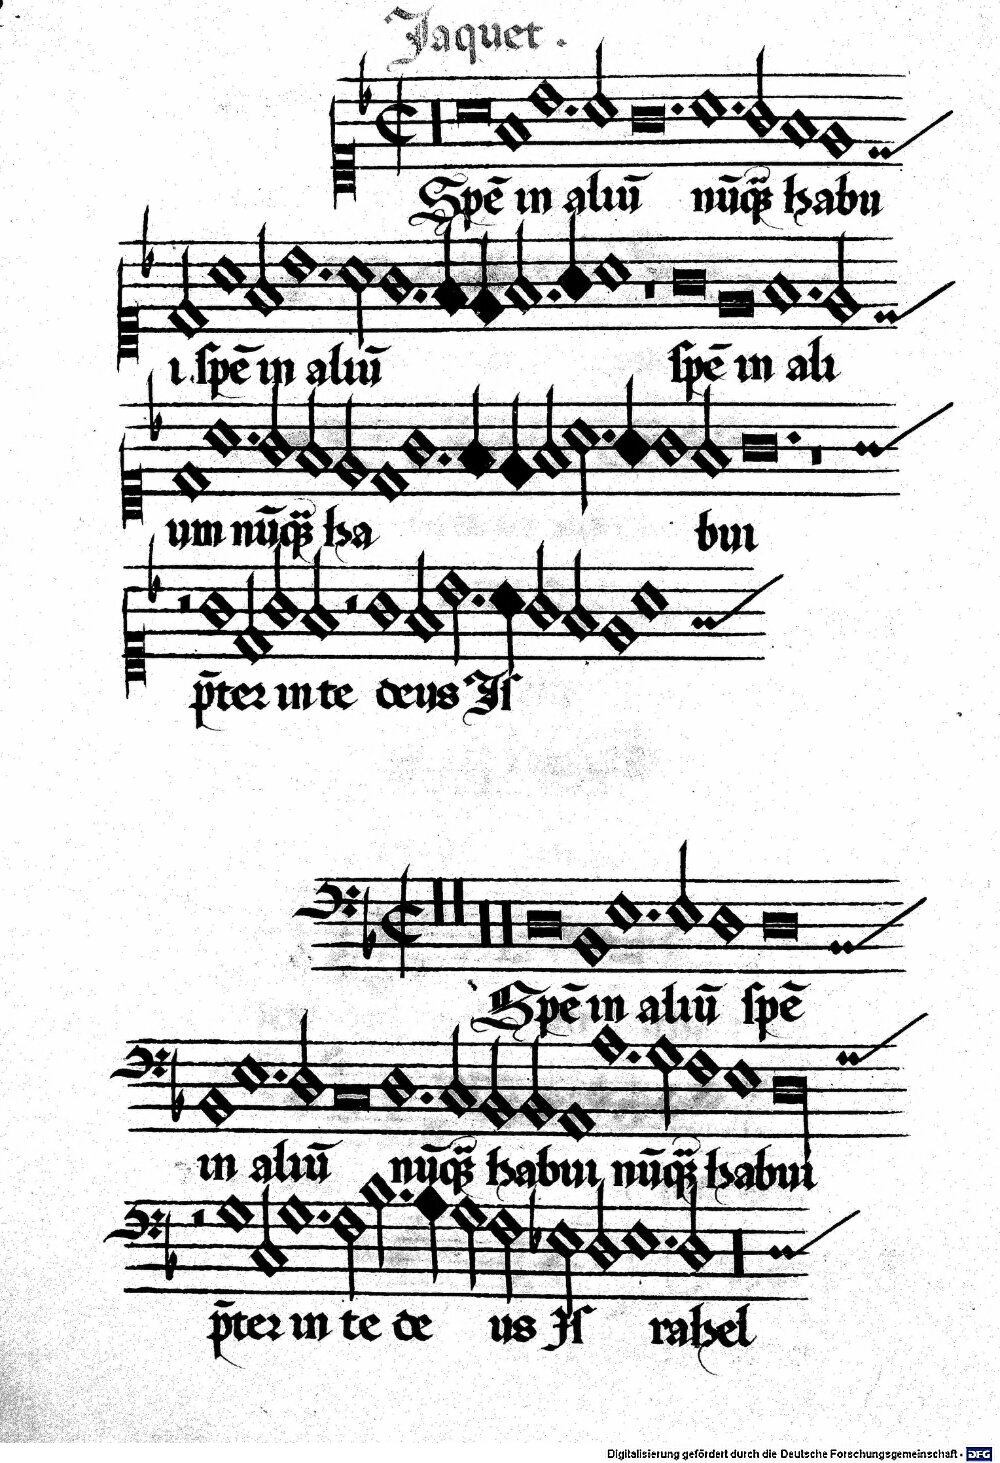 Jaquet.
Spē in aliū nūq̄ʒ habu
i spē in aliū spē in ali
um nūq̄ʒ ha bui
p̄ter in te deus Iſ
Spē in aliū ſpē
in aliū nūq̄ʒ habui nūq̄ʒ habui
p̄ter in te de us Iſ rahel
Digitalisierung gefördert durch die Deutsche Forschungsgemeinschaft - DFG